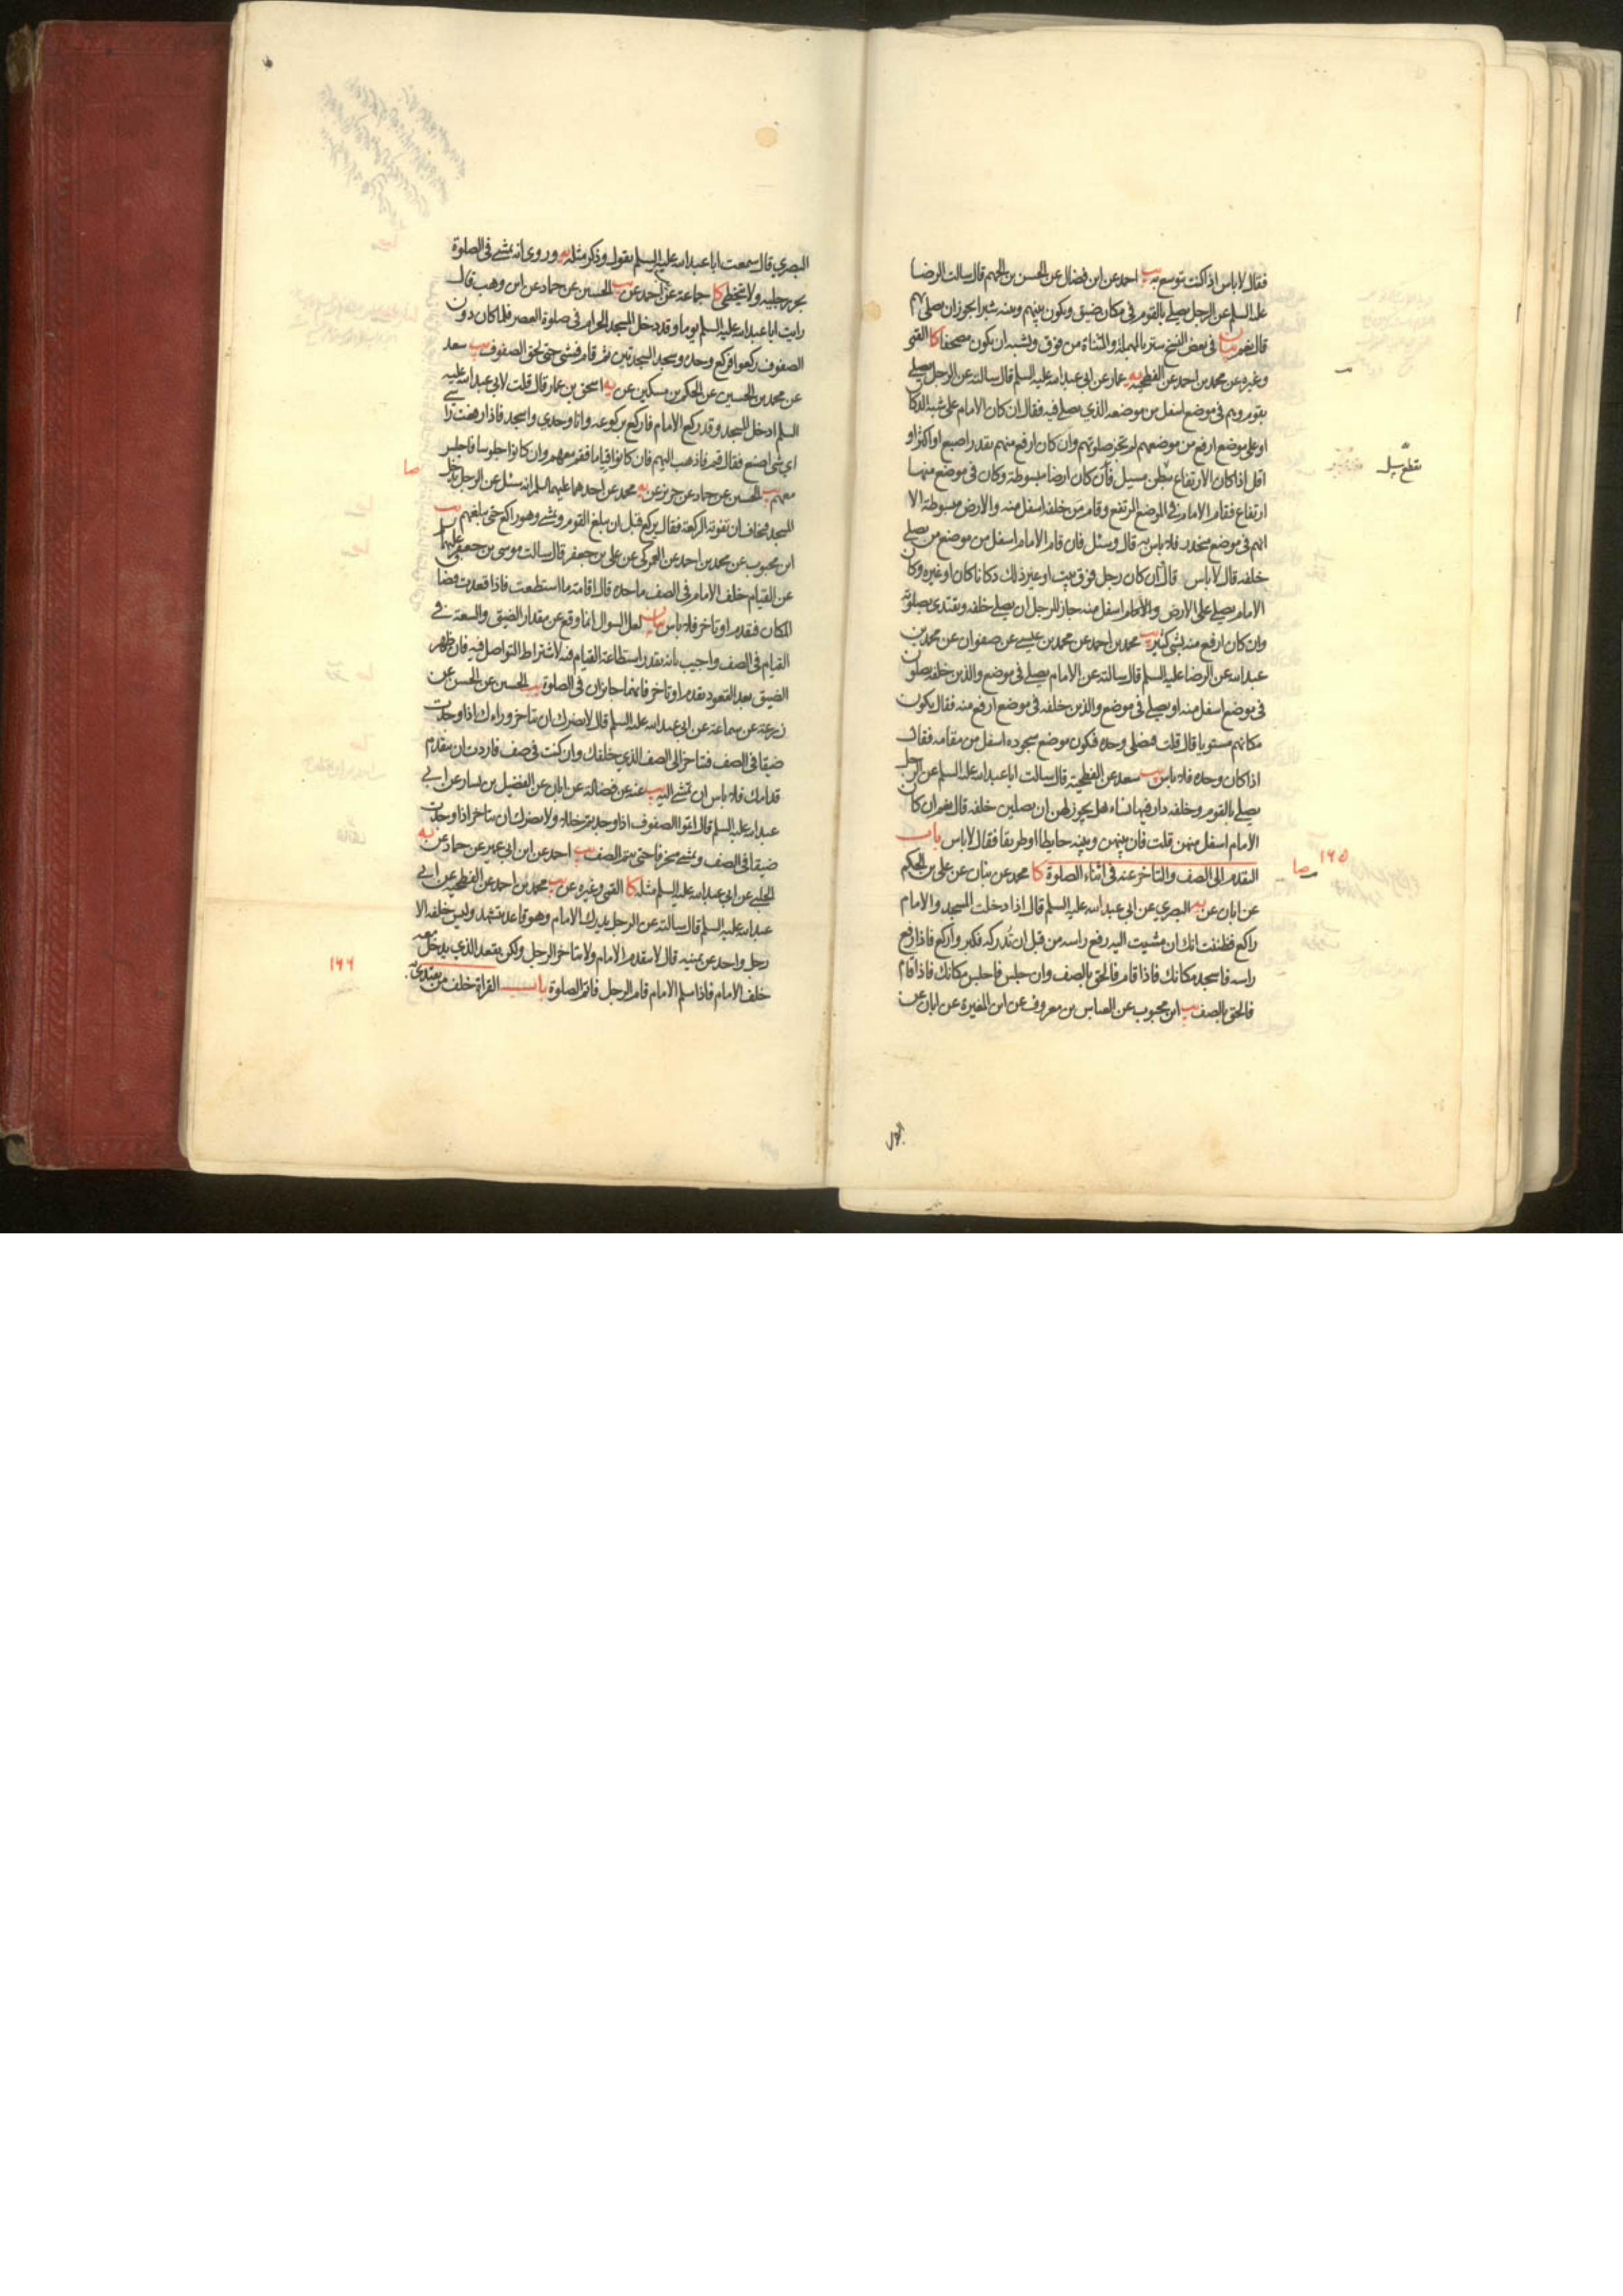 فقال لا باس اذا كنت توسع به يب احمد عن ابن فضال عن الحسن بن الجهم قال سالت الرضا
عليه السلم عن الرجل يصلي بالقوم في مكان ضيق ويكون بينهم وبينه شبرا يجوز ان يصلي بهم
قال نعم بيان في بعض النسخ ستر بالمهملة والمثناة من فوق ويشبه ان يكون مصحفا كا القمي
وغيره عن محمد بن احمد عن الفطحية يه عمار عن ابي عبد الله عليه السلم قال سالته عن الرجل يصلي
بقوم وهم في موضع اسفل من موضعه الذي يصلي فيه فقال ان كان الامام على شبه الدكا
او على موضع ارفع من موضعهم لم تجز صلوتهم وان كان ارفع منهم بقدر اصبع او اكثر او
اقل اذا كان الارتفاع ببطن مسيل فان كان ارضا مبسوطة وكان في موضع منها
ارتفاع فقام الامام في الموضع المرتفع وقام من خلفه اسفل منه والارض مبسوطة الا
انهم في موضع منحدر فلا باس به قال وسئل فان قام الامام اسفل من موضع من يصلي
خلفه قال لا باس قال ان كان رجل فوق بيت او غير ذلك دكانا كان او غيره وكان
الامام يصلي على الارض والامام اسفل منه جاز للرجل ان يصلي خلفه ويقتدي بصلوته
وان كان ارفع منه بشئ كثير يب محمد بن احمد عن محمد بن عيسى عن صفوان عن محمد بن
عبد الله عن الرضا عليه السلم قال سالته عن الامام يصلي في موضع والذين خلفه يصلون
في موضع اسفل منه او يصلي في موضع والذين خلفه في موضع ارفع منه فقال يكون
مكانهم مستويا قال قلت فيصلي وحده فيكون موضع سجوده اسفل من مقامه فقال
اذا كان وحده فلا باس يب سعد عن الفطحية قال سالت ابا عبد الله عليه السلم عن الرجل
يصلي بالقوم وخلفه دار فيها نساء هل يجوز لهن ان يصلين خلفه قال نعم ان كان
الامام اسفل منهن قلت فان بينهن وبينه حايطا او طريقا فقال لا باس باب
التقدم الى الصف والتاخر عنه في اثناء الصلوة كا محمد عن بنان عن علي بن الحكم
عن ابان عن يه البصري عن ابي عبد الله عليه السلم قال اذا دخلت المسجد والامام
راكع فظننت انك ان مشيت اليه رفع راسه من قبل ان تدركه فكبر واركع فاذا رفع
راسه فاسجد مكانك فاذا قام فالحق بالصف وان جلس فاجلس مكانك فاذا قام
فالحق بالصف يب ابن محبوب عن العباس بن معروف عن ابن المغيرة عن ابان عن
١٦٥
صا
البصري قال سمعت ابا عبد الله عليه السلم يقول وذكر مثله يه وروي انه يمشي في الصلوة
يجر رجليه ولا يتخطى كا جماعة عن احمد عن يب الحسين عن حماد عن ابن وهب قال
رايت ابا عبد الله عليه السلم يوما وقد دخل المسجد الحرام في صلوة العصر فلما كان دون
الصفوف ركعوا فركع وحده وسجد السجدتين ثم قام فمشى حتى لحق الصفوف يب سعد
عن محمد بن الحسين عن الحكم بن مسكين عن يه اسحق بن عمار قال قلت لابي عبد الله عليه
السلم ادخل المسجد وقد ركع الامام فاركع بركوعه وانا وحدي واسجد فاذا رفعت راسي
اي شئ اصنع فقال قم فاذهب اليهم فان كانوا قياما فقم معهم وان كانوا جلوسا فاجلس
معهم يب الحسين عن حماد عن حريز عن يه محمد عن احدهما عليهما السلم انه سئل عن الرجل يدخل
المسجد فيخاف ان تفوته الركعة فقال يركع قبل ان يبلغ القوم ويمشي وهو راكع حتى يبلغهم يب
ابن محبوب عن محمد بن احمد عن العمركي عن علي بن جعفر قال سالت موسى بن جعفر عليهما
عن القيام خلف الامام في الصف ما حده قال اقامة ما استطعت فاذا قعدت فضا
المكان فتقدم او تاخر فلا باس بيان لعل السوال انما وقع عن مقدار الضيق والسعة في
القيام في الصف واجيب بانه بقدر استطاعة القيام فيه لاشتراط التواصل فيه فان ظهر
الضيق بعد القعود يقدم او تاخر فانهما جايزان في الصلوة يب الحسين عن الحسن عن
زرعة عن سماعة عن ابي عبد الله عليه السلم قال لا يضرك ان تتاخر وراءك اذا وجدت
ضيقا في الصف فتتاخر الى الصف الذي خلفك وان كنت في صف فاردت ان تتقدم
قدامك فلا باس ان تمشي اليه يب عنه عن فضالة عن ابان عن الفضيل بن يسار عن ابي
عبد الله عليه السلم قال اتموا الصفوف اذا وجدتم خللا ولا يضرك ان تتاخر اذا وجدت
ضيقا في الصف وتمشي منحرفا حتى تتم الصف يب احمد عن ابن ابي عمير عن حماد عن يه
الحلبي عن ابي عبد الله عليه السلم مثله كا القمي وغيره عن يب محمد بن احمد عن الفطحية عن ابي
عبد الله عليه السلم قال سالته عن الرجل يدرك الامام وهو قاعد يتشهد وليس خلفه الا
رجل واحد عن يمينه قال لا يتقدم الامام ولا يتاخر الرجل ولكن يقعد الذي يدخل معه
خلف الامام فاذا سلم الامام قام الرجل فاتم الصلوة باب القراة خلف من يقتدى به
صا
١٦٦